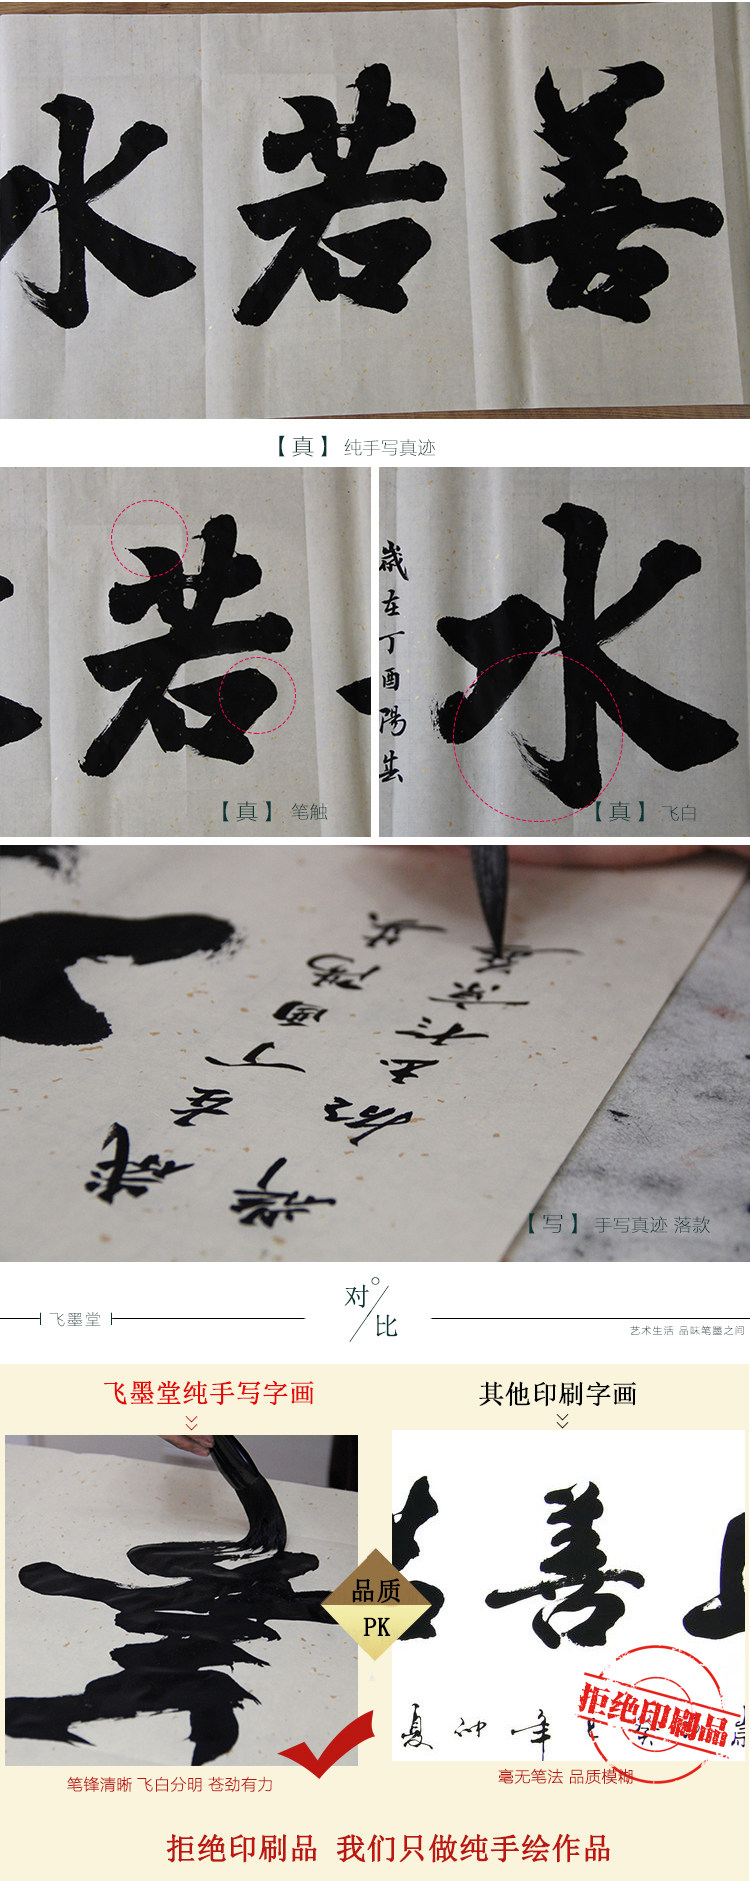 水若善
【真】 纯手写真迹
若
【真】 笔触
水
歲在丁酉陽
【真】 飞白
【写】 手写真迹 落款
飞墨堂
对比
艺术生活 品味笔墨之间
飞墨堂纯手写字画
其他印刷字画
善
品质
PK
拒绝印刷品
夏 仲 年
笔锋清晰 飞白分明 苍劲有力
毫无笔法 品质模糊
拒绝印刷品 我们只做纯手绘作品